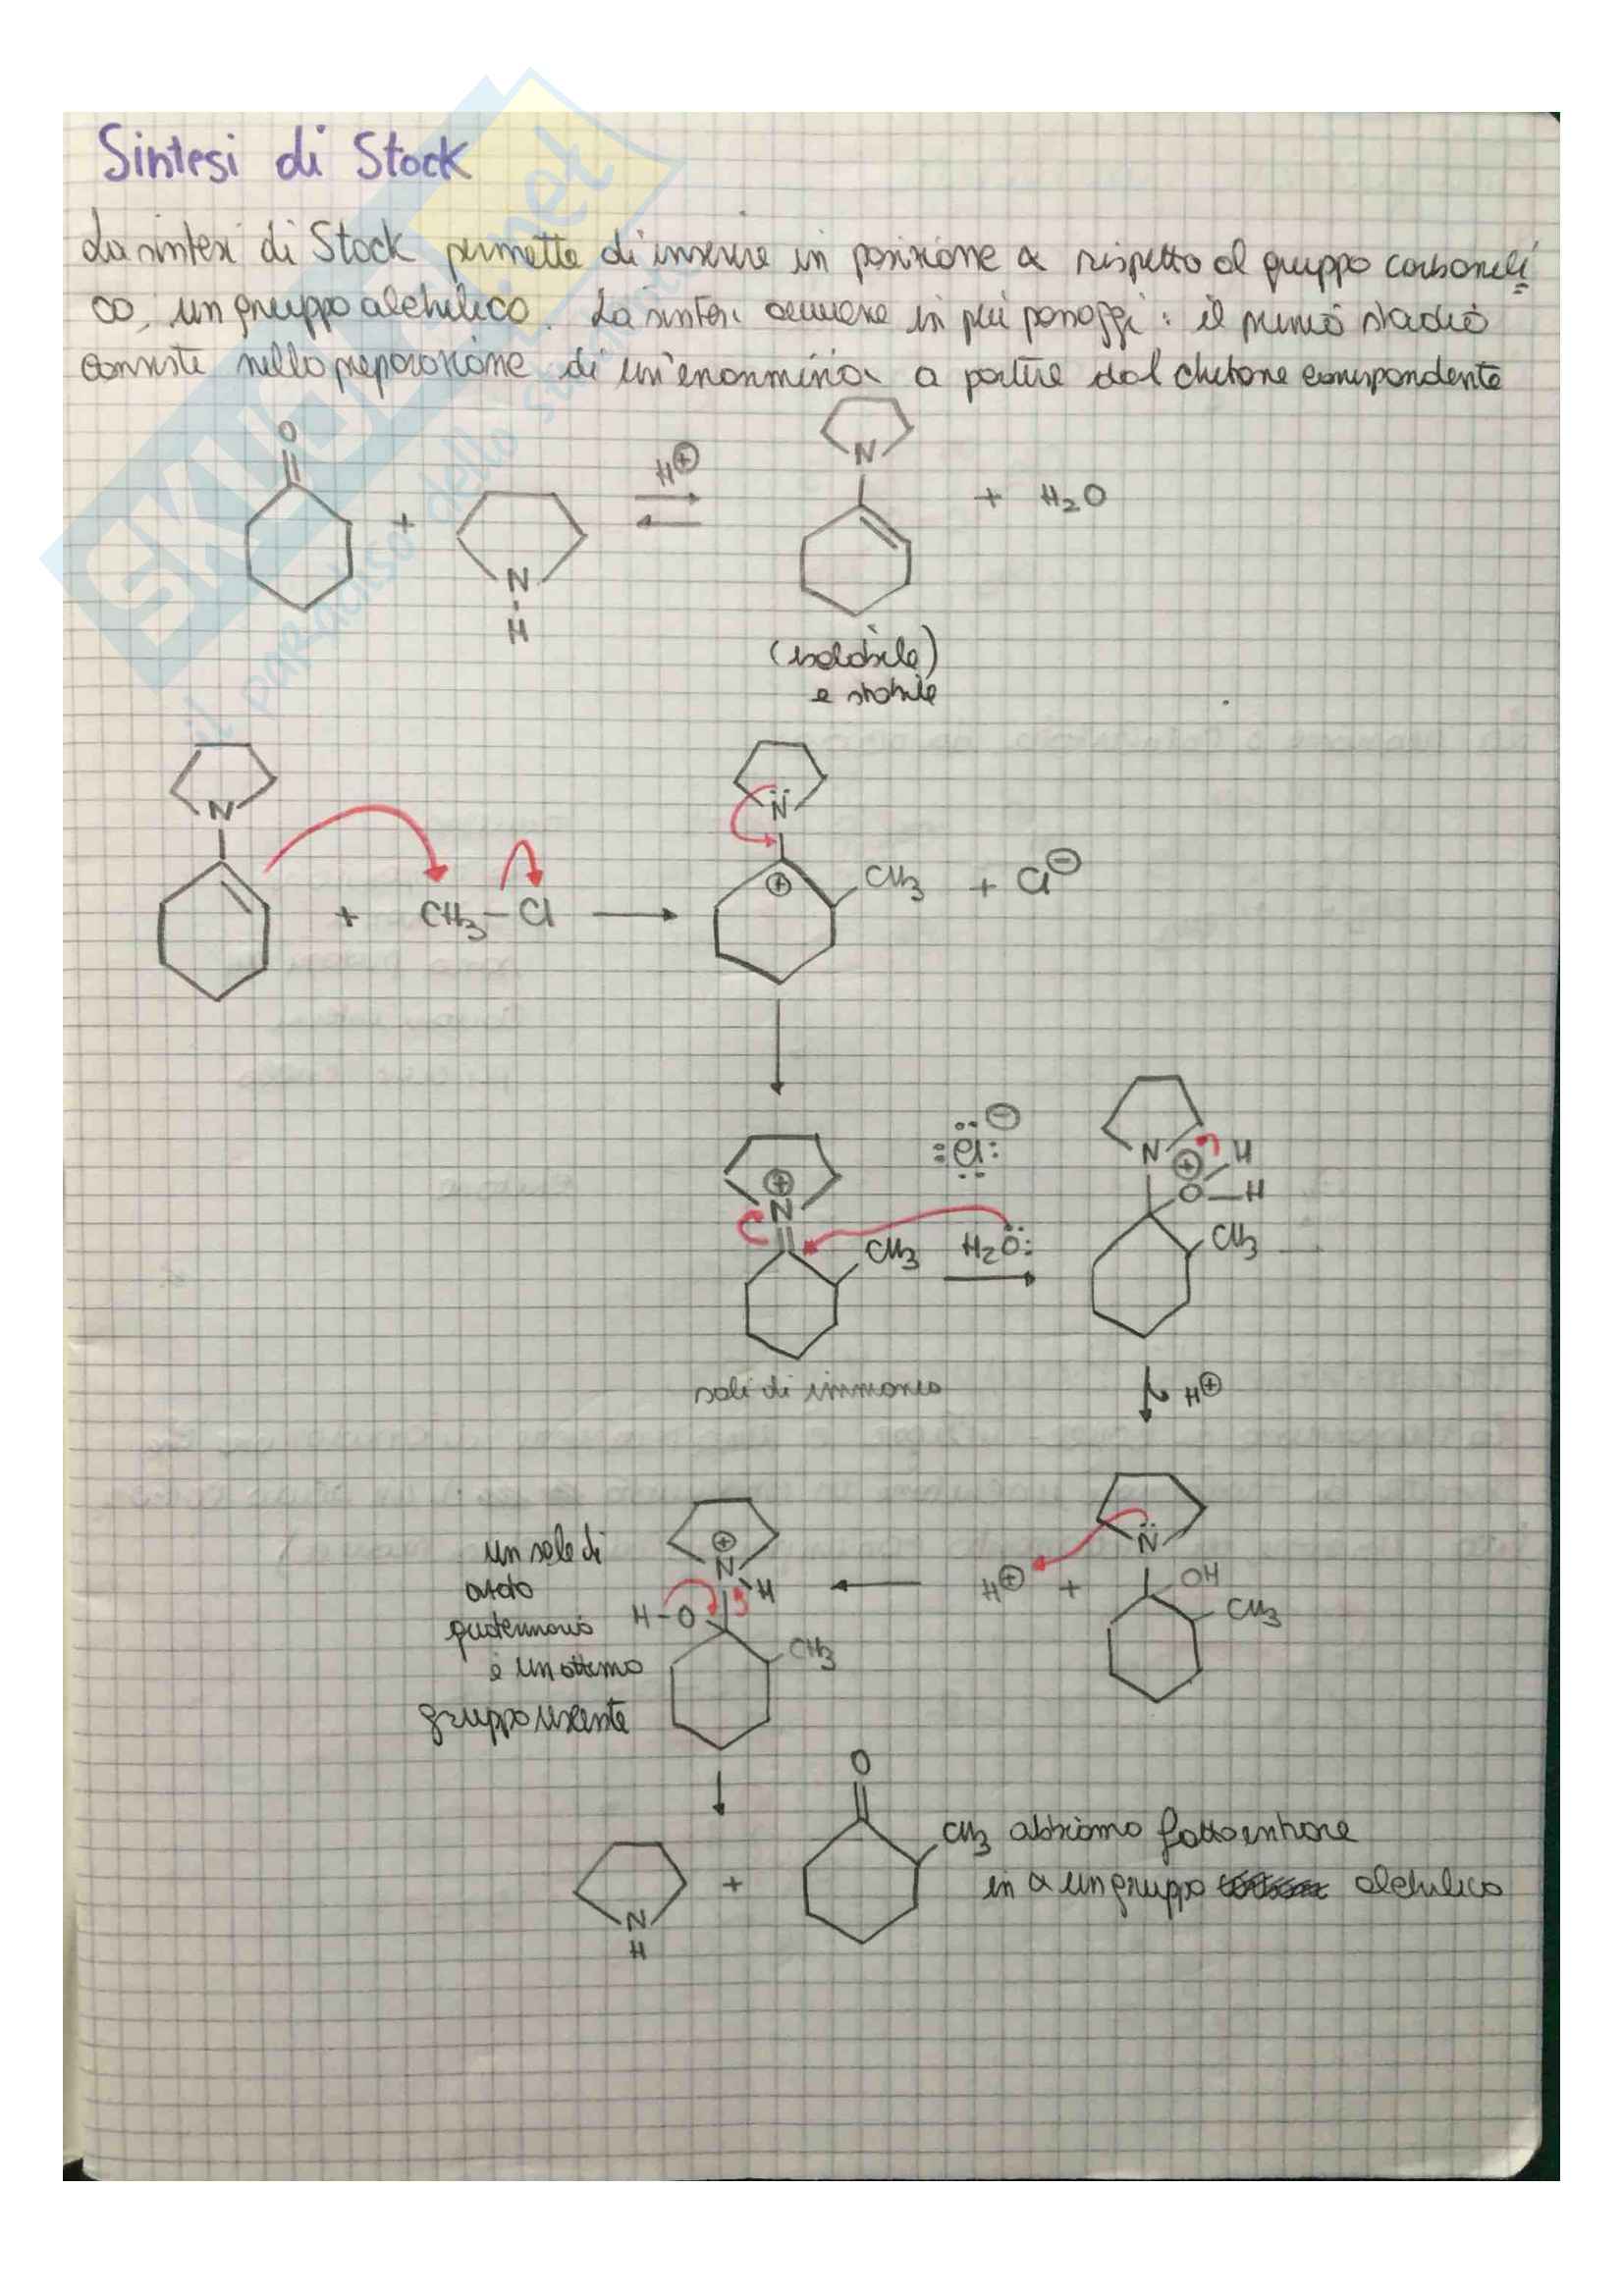 Sintesi di Stock
La sintesi di Stock permette di inserire in posizione α rispetto al gruppo carbonili
co, un gruppo alchilico. La sintesi avviene in più passaggi: il primo stadio
consiste nella preparazione di un'enammina a partire dal chetone corrispondente
O
N
H⊕
+
+ H₂O
N
H
(isolabile)
e stabile
N
N̈
+ CH₃–Cl
⊕ CH₃ + Cl⊖
:Cl: ⊖
N
⊕
N
⊕ H
O–H
CH₃ H₂Ö:
CH₃
sali di immonio
H⊕
N̈
⊕
un sale di
N
H
H⊕ +
OH
CH₃
quaternario
H–O
è un ottimo
CH₃
gruppo uscente
O
CH₃ abbiamo fatto entrare
+
in α un gruppo alchilico
N
H
SKUOLA.net
il paradiso dello studente